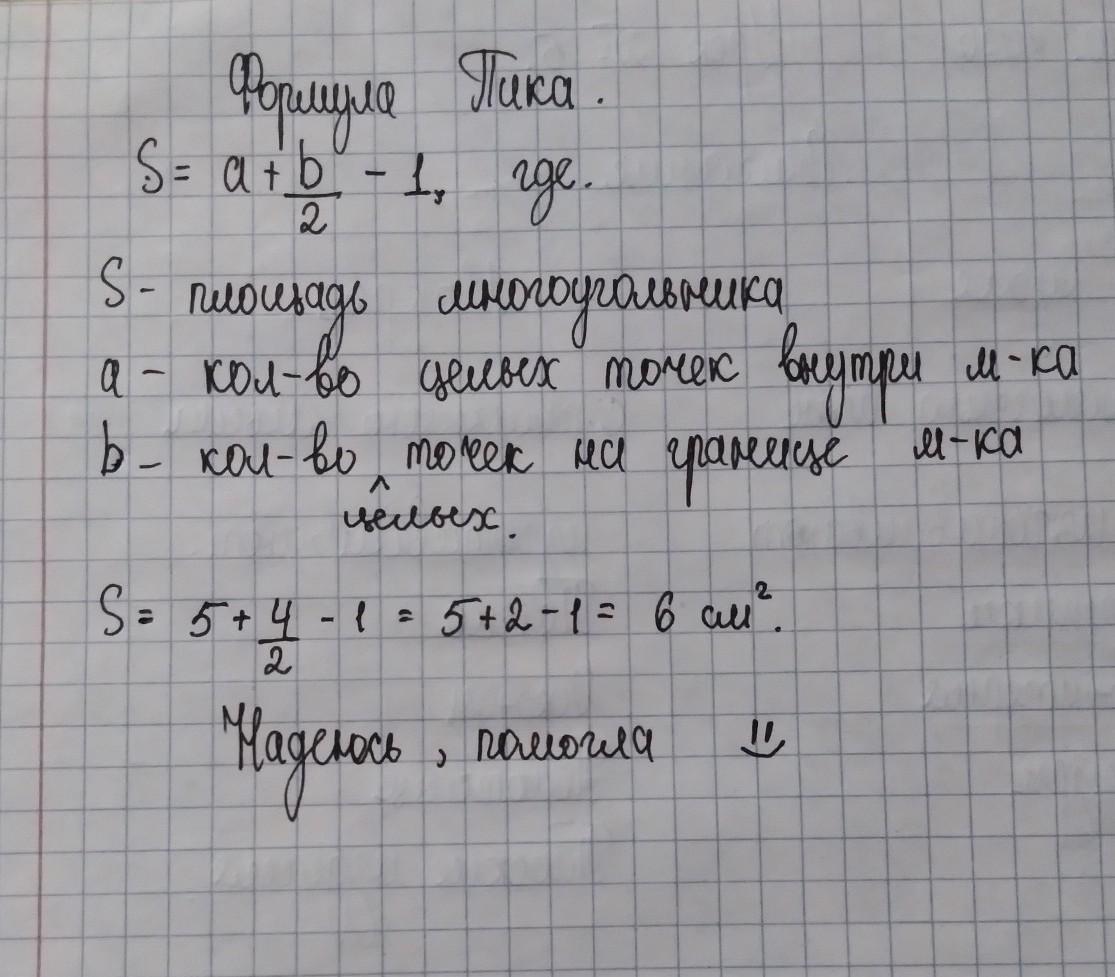 Формула Пика.
S = a + b/2 - 1, где.
S - площадь многоугольника
a - кол-во целых точек внутри м-ка
b - кол-во точек на границе м-ка
^
целых.
S = 5 + 4/2 - 1 = 5 + 2 - 1 = 6 см².
Надеюсь, помогла